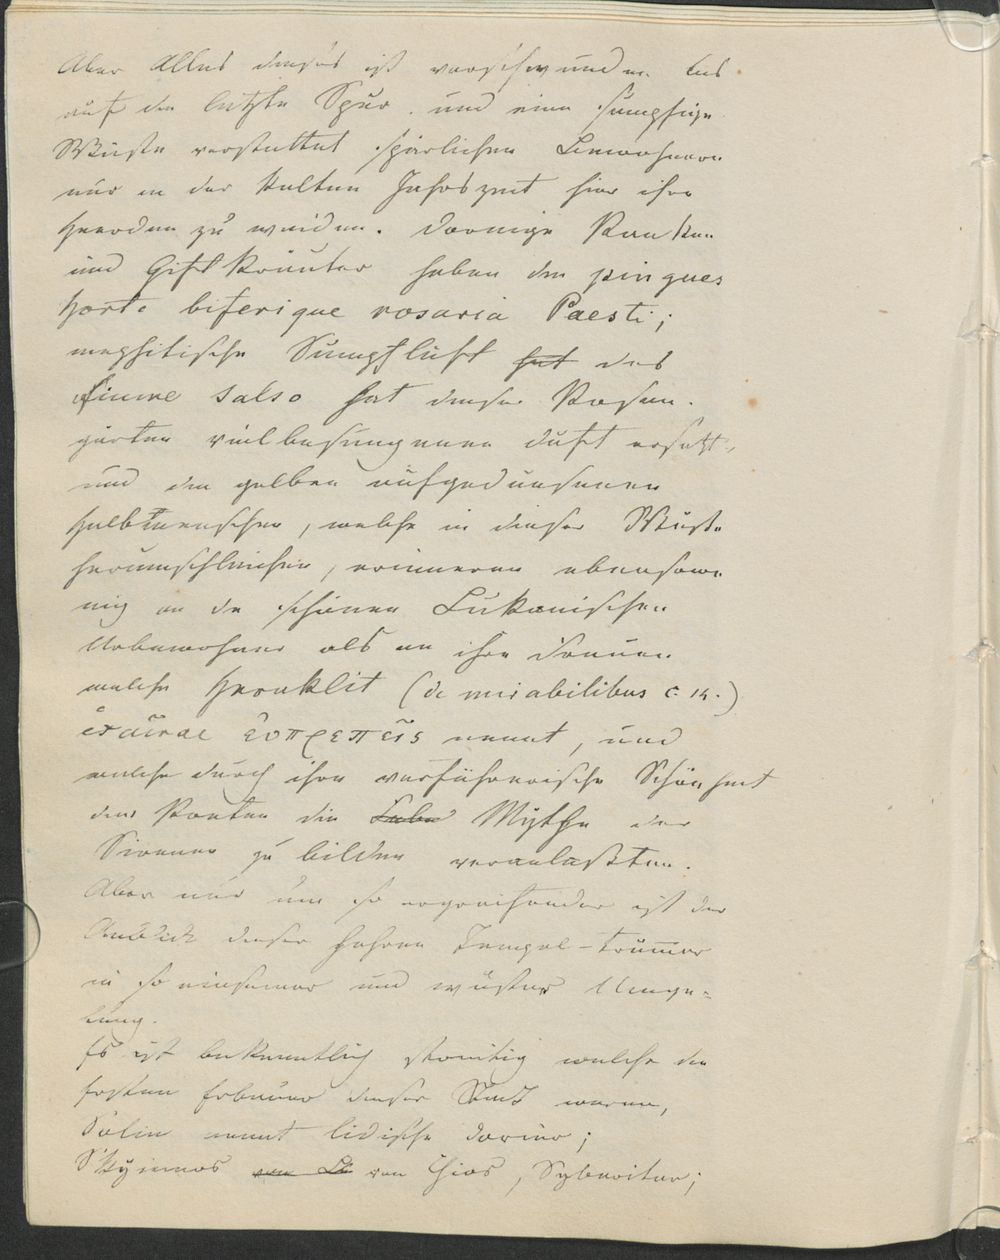 Aber Alles dieses ist verschwunden bis
auf die letzte Spur, und eine sumpfige
Wüste verstattet spärlichen Bewohnern
nur in der kalten Jahrszeit hier ihre
Heerden zu weiden. Dornige Ranken
und Giftkräuter haben den pingues
horti biferique rosaria Paesti;
mephitische Sumpfluft hat des
fiume salso hat dieser Rosen-
gärten vielbesungenen Duft ersetzt,
und die gelben aufgedunsenen
Halbmenschen, welche in dieser Wüste
herumschleichen, erinneren ebensowe
nig an die schönen Lukanischen
Urbewohner als an ihre Frauen
welche Heraklit (de mirabilibus c. 14.)
ἑταῖραι εὐπρεπεῖς nennt, und
welche durch ihre verführerische Schönheit
den Poeten die Mythe der
Sirenen zu bilden veranlaßten.
Aber nur um so ergreifender ist der
Anblick dieser hehren Tempel-trümmer
in so einsamer und wüster Umge-
bung.
Es ist bekanntlich streitig welche die
ersten Erbauer dieser Stadt waren,
Solin nennt lidische Dorier;
Skyimnos von Chios, Sybariten;